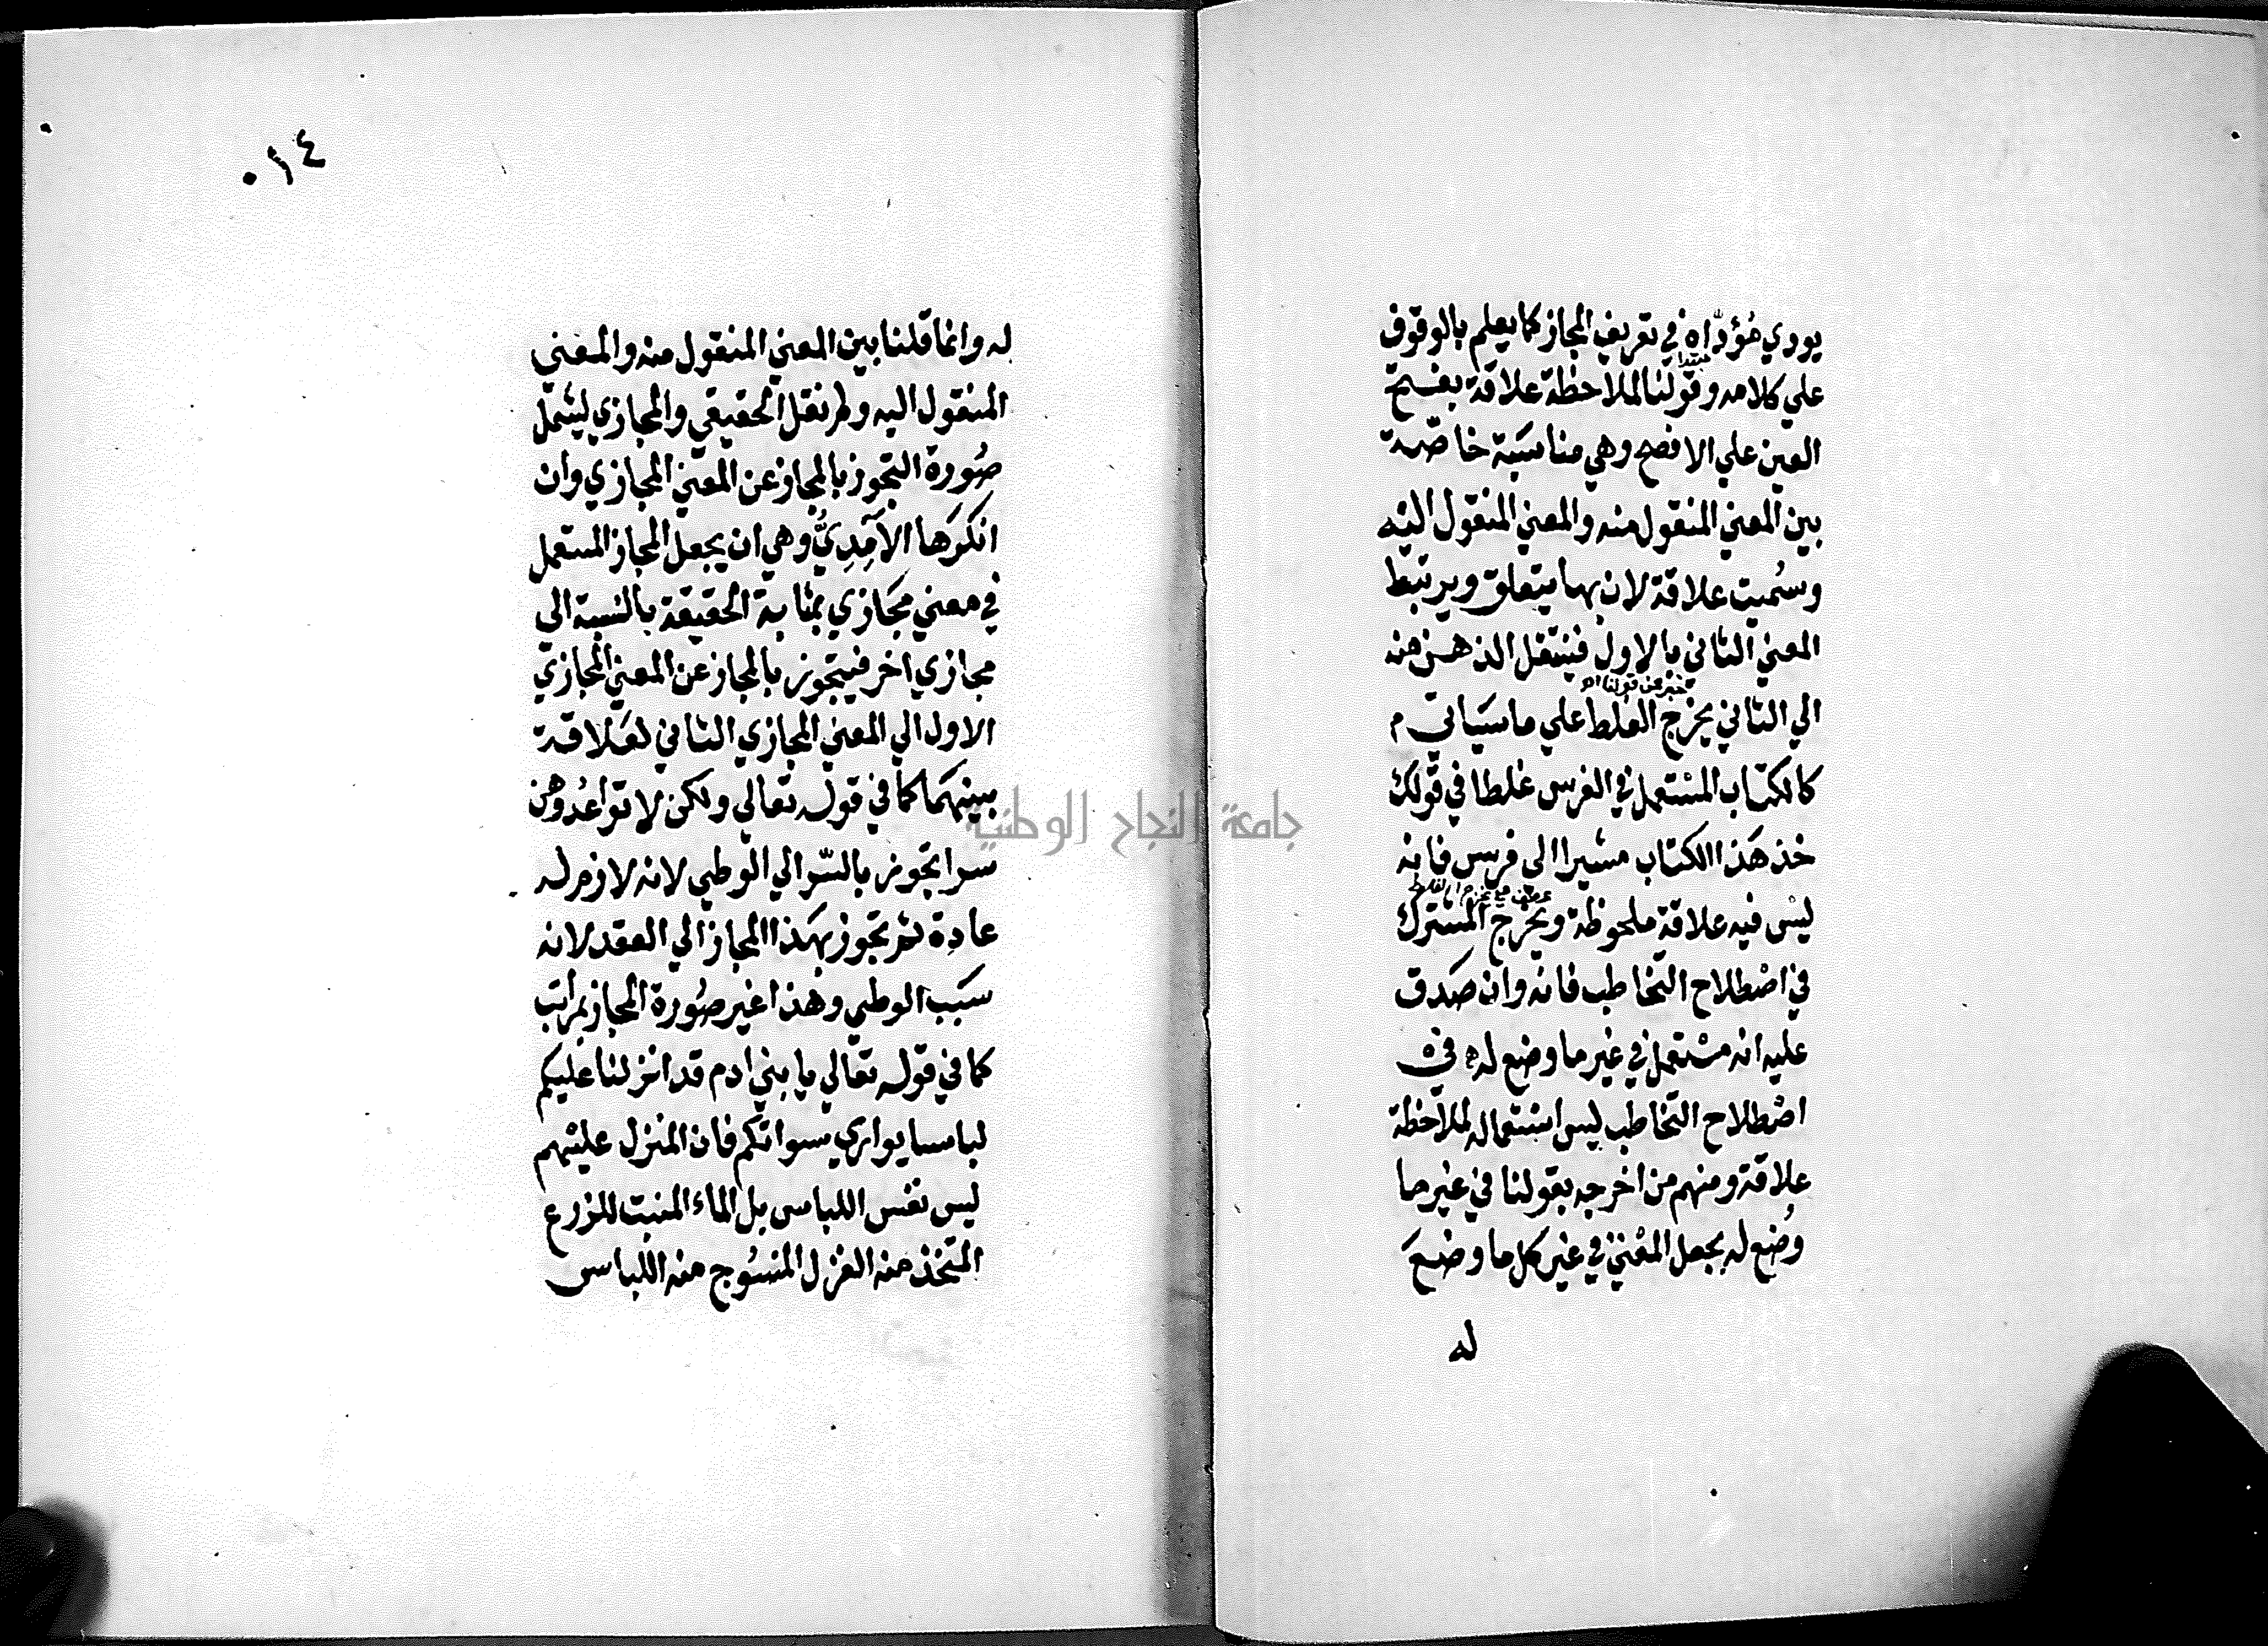 يودي مُؤدَّاه في تعريف المجاز كما يعلم بالوقوف
مبتدا
علي كلامه وقولنا لملاحظة علاقة بفتح
العين علي الافصح وهي مناسَبَة خاصّة
بين المعني المنقول منه والمعني المنقول اليْه
وسُميت علاقة لان بها يتعلق ويرتبط
المعني الثاني بالاول فينتقل الذهن منه
خبر عن قولنا اه
الي الثاني يخرج الغلط علي ما سيَاتي م
كالكتاب المسْتعمل في الفرس غلطا في قولك
خذ هَذا الكتاب مشيرا الى فرس فانه
عطف على يخرج الغلط
ليْس فيه علاقة ملحوظة ويخرج المشترك
في اصْطلاح التّخاطب فانه وان صَدق
عليه انه مسْتعمل في غير ما وضع له في
اصْطلاح التّخاطب ليس اسْتعماله لملاحظة
علاقة ومنهم من اخرجه بقولنا في غير ما
وُضع له بجعل المعْني في غير كل ما وضعَ
له
٠١٤
له وانما قلنا بين المعني المنقول منه والمعني
المنقول اليه ولم نقل الحقيقي والمجازي ليشمل
صُورة التجوز بالمجاز عن المعني المجازي وان
انكرَها الآمِدِيُّ وهي ان يجعل المجاز المستعمل
في معني مَجَازي بمثابة الحقيقة بالنسبة الي
مجازي اخر فيتجوز بالمجاز عن المعني المجازي
الاول الي المعني المجازي الثاني لعَلاقة
بينهمَا كما في قوله تعالي ولكن لا تواعدُوهن
سرا تجوز بالسّر الي الوطي لانه لازم له
عادة ثم تجوز بهَذا المجاز الي العقد لانه
سَبَب الوطي وهذا غير صُورة المجاز بمراتب
كما في قوله تعالي يا بني ادم قد انزلنا عليكم
لباسا يواري سواتكم فان المنزل عليْهم
ليس نفس اللباس بل الماء المنبت للزرع
المتخذ منه الغزل المنسُوج منه اللباس
جامعة النجاح الوطنية